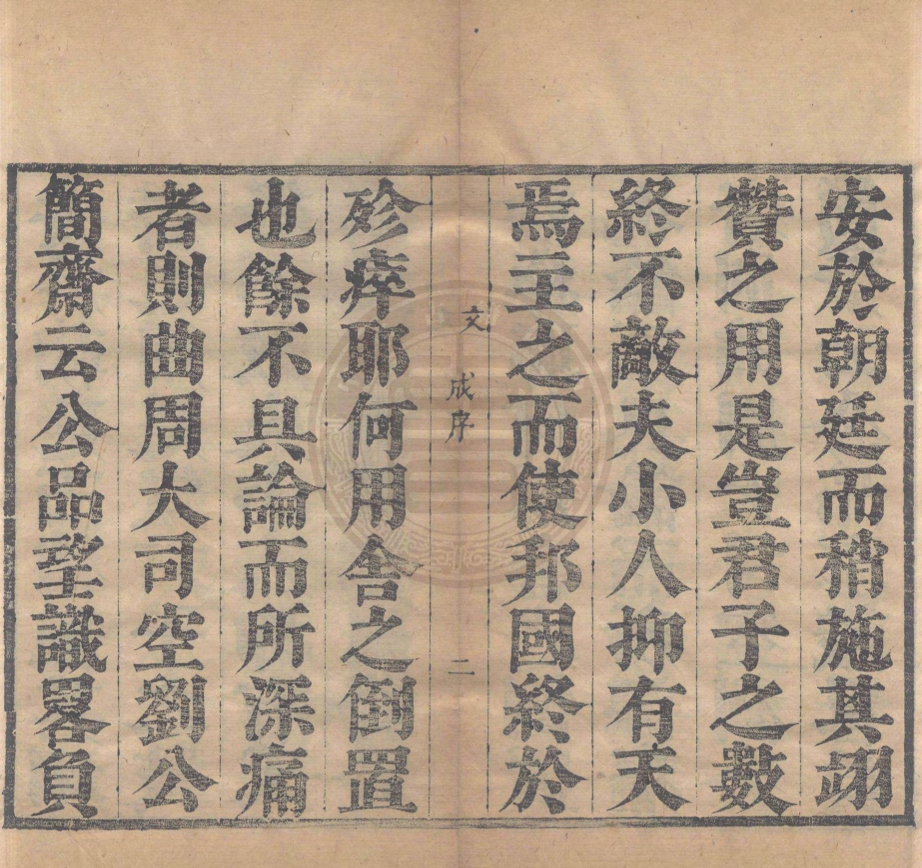 安於朝廷而稍施其翊
贊之用是豈君子之數
終不敵夫小人抑有天
焉主之而使邦國終於
文 成序 二
殄瘁耶何用舍之倒置
也餘不具論而所深痛
者則曲周大司空劉公
簡齋云公品望識畧負